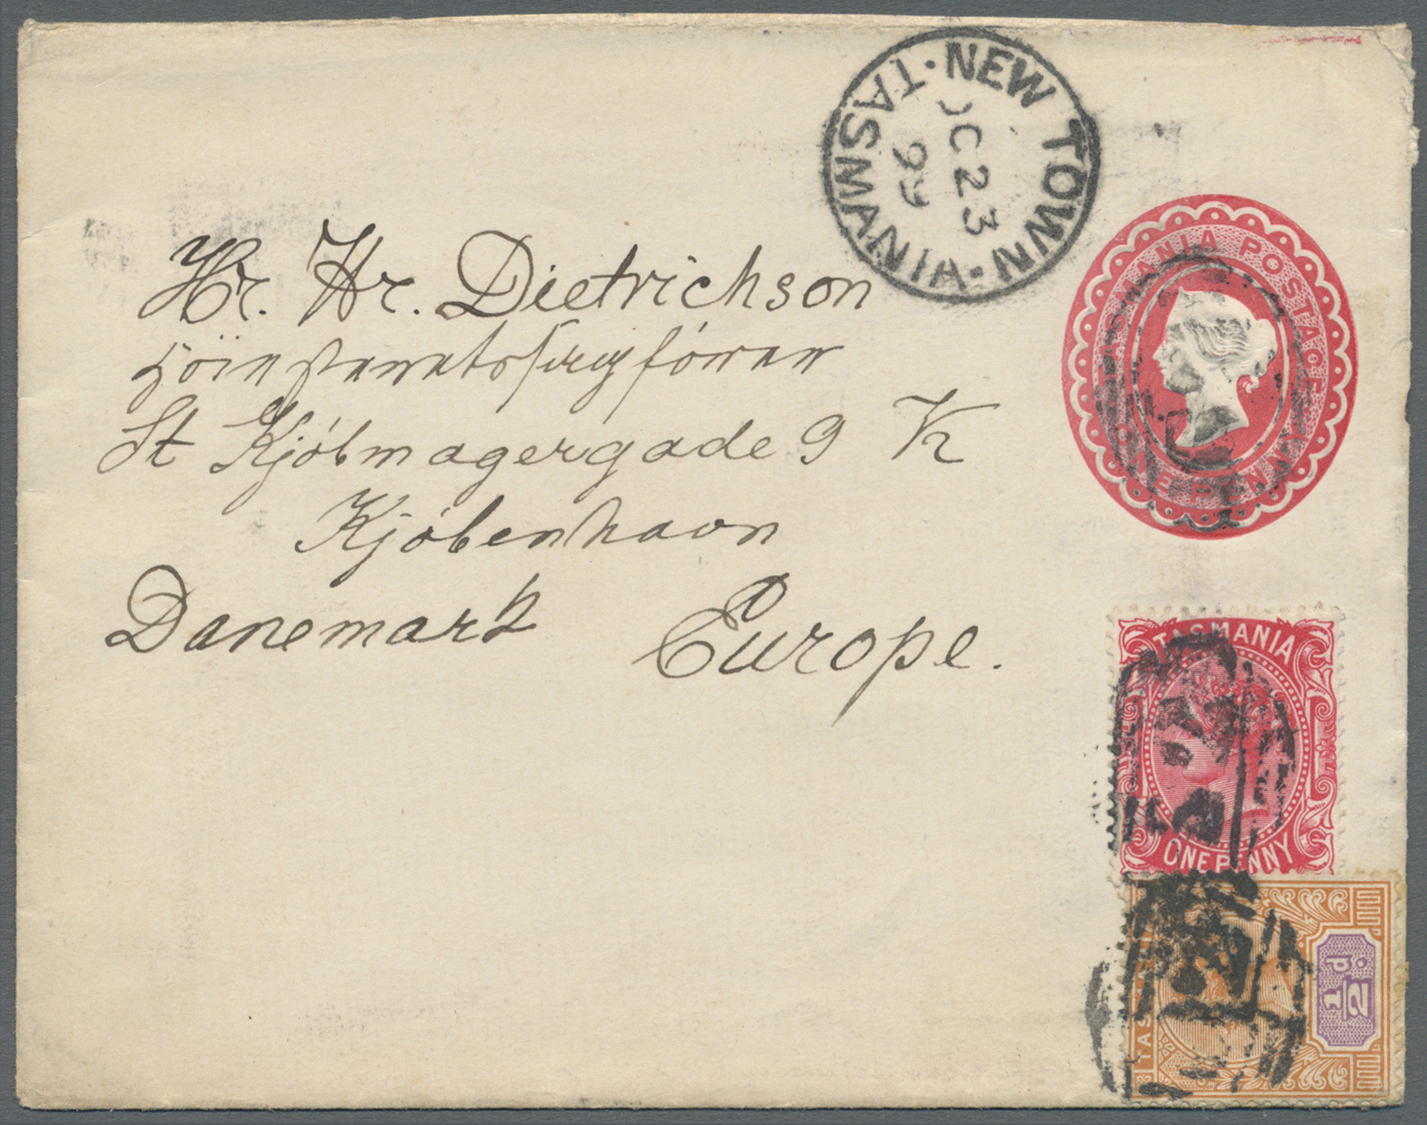 NEW TOWN · TASMANIA ·
OC 23
99
TASMANIA POSTAGE
ONE PENNY
Hr. Hr. Dietrichson
St Kjöbmagergade 9 K
Kjöbenhavn
Danemark Europe.
TASMANIA
ONE PENNY
TASMANIA
1/2 d.